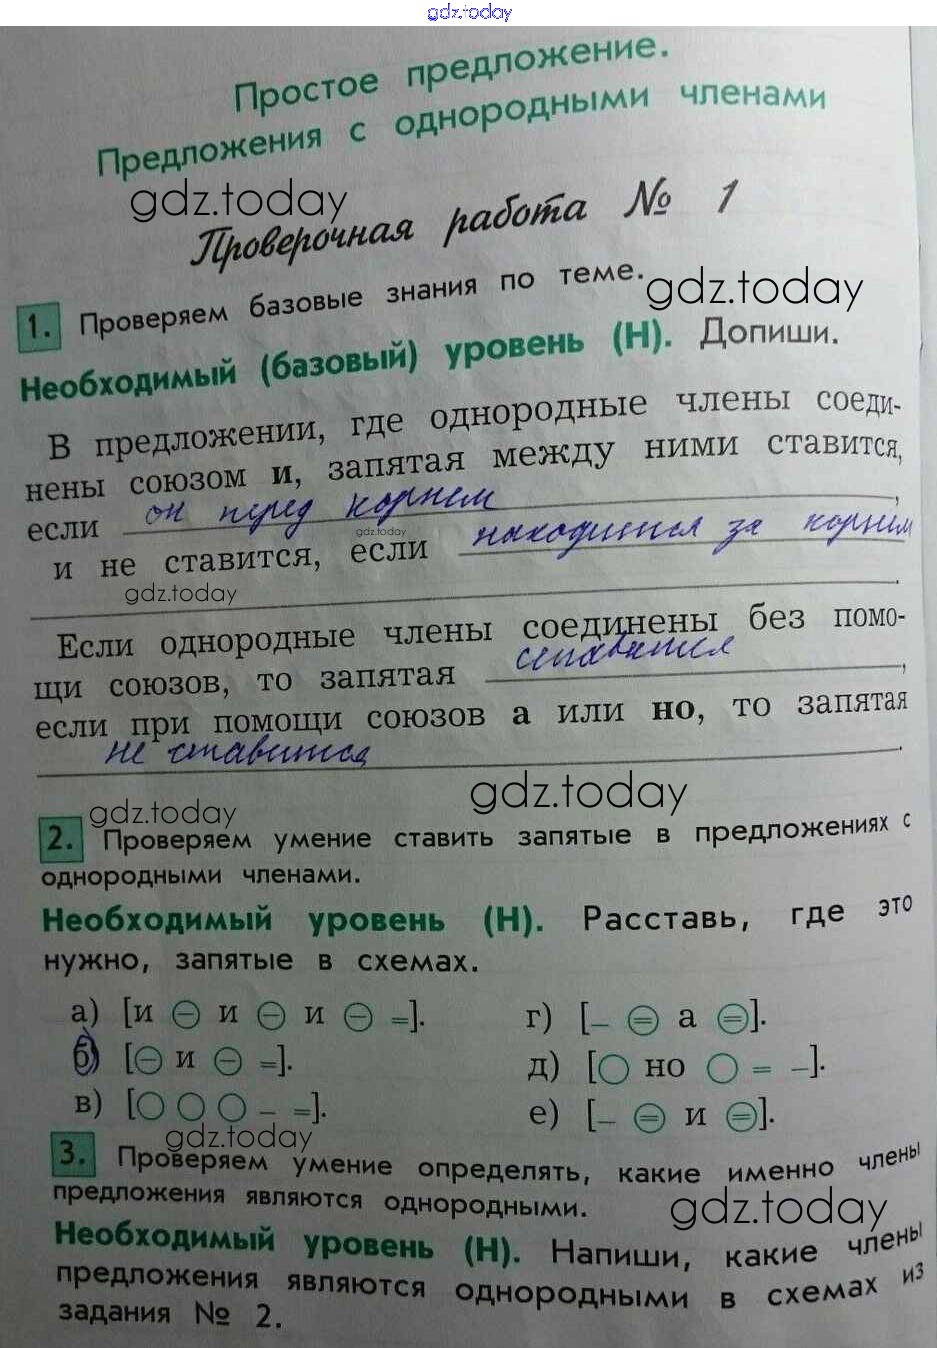 gdz.today
Простое предложение.
Предложения с однородными членами
gdz.today
Проверочная работа № 1
1. Проверяем базовые знания по теме.
gdz.today
Необходимый (базовый) уровень (Н). Допиши.
В предложении, где однородные члены соеди-
нены союзом и, запятая между ними ставится,
если он перед корнем,
gdz.today
и не ставится, если находится за корнем
gdz.today
.
Если однородные члены соединены без помо-
щи союзов, то запятая ставится,
если при помощи союзов а или но, то запятая
не ставится.
gdz.today
gdz.today
2. Проверяем умение ставить запятые в предложениях с
однородными членами.
Необходимый уровень (Н). Расставь, где это
нужно, запятые в схемах.
а) [и ⊖ и ⊖ и ⊖ =].
г) [– ⊜ а ⊜].
б) [⊖ и ⊖ =].
д) [○ но ○ = –].
в) [○ ○ ○ – =].
е) [– ⊜ и ⊜].
gdz.today
3. Проверяем умение определять, какие именно члены
предложения являются однородными.
gdz.today
Необходимый уровень (Н). Напиши, какие члены
предложения являются однородными в схемах из
задания № 2.